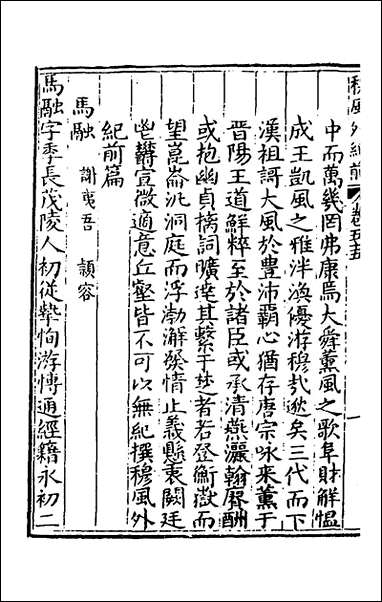 穆風外紀前 卷五五
中而萬幾罔弗康焉大舜薰風之歌阜財解慍
成王凱風之雅泮渙優游穆穆逖矣三代而下
漢祖歌大風於豊沛覇心猶存唐宗咏来薰于
晋陽王道鮮粹至於諸臣或承清燕灑翰賡酬
或抱幽貞摛詞曠逹其繫于埗者若登衡嶽而
望崑崙汎洞庭而浮渤澥發情止義懸衷闕廷
鬯欝宣微適意丘壑皆不可以無紀撰穆風外
紀前篇
馬融 謝夷吾 頴容
馬融字季長茂陵人初從摯恂游愽通經籍永初二